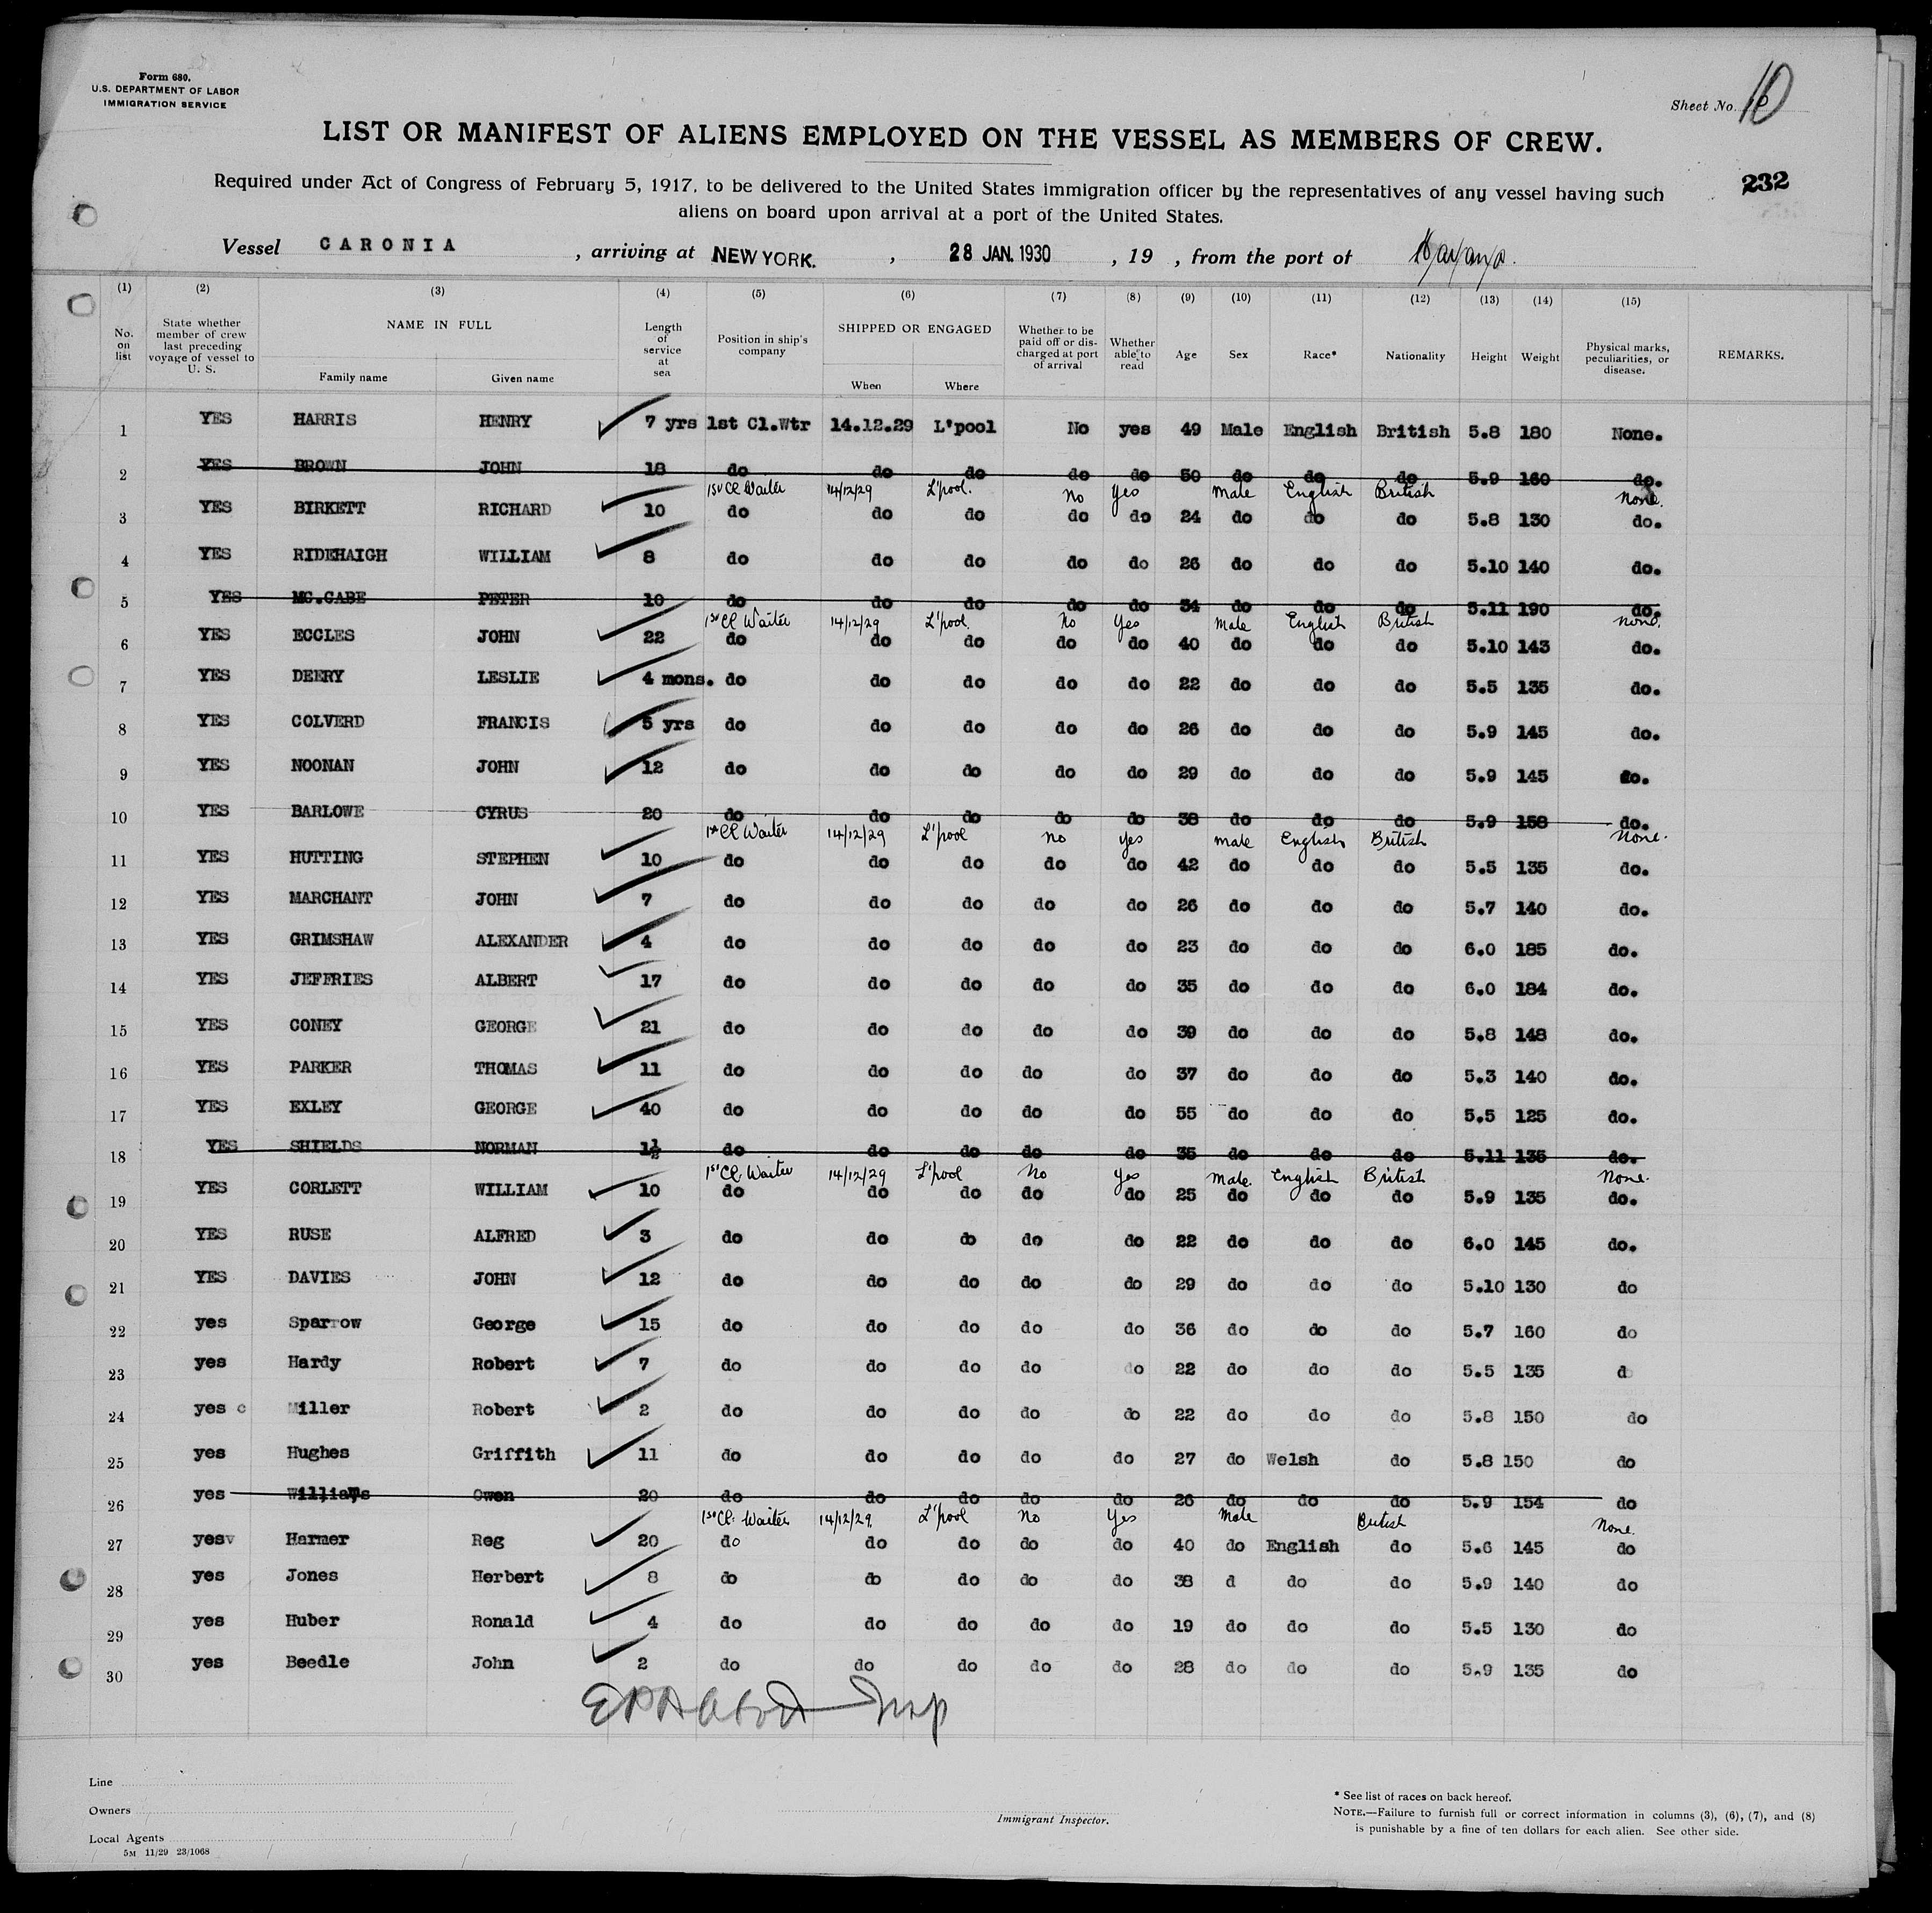 Form 680.
U.S. DEPARTMENT OF LABOR
IMMIGRATION SERVICE
Sheet No. 10
LIST OR MANIFEST OF ALIENS EMPLOYED ON THE VESSEL AS MEMBERS OF CREW.
232
Required under Act of Congress of February 5, 1917, to be delivered to the United States immigration officer by the representatives of any vessel having such
aliens on board upon arrival at a port of the United States.
Vessel CARONIA, arriving at NEW YORK., 28 JAN. 1930, 19 , from the port of Havana.
(1) (2) (3) (4) (5) (6) (7) (8) (9) (10) (11) (12) (13) (14) (15)
No. on list State whether member of crew last preceding voyage of vessel to U. S. NAME IN FULL Family name Given name Length of service at sea Position in ship's company SHIPPED OR ENGAGED When Where Whether to be paid off or discharged at port of arrival Whether able to read Age Sex Race* Nationality Height Weight Physical marks, peculiarities, or disease. REMARKS.
1 YES HARRIS HENRY 7 yrs 1st Cl.Wtr 14.12.29 L'pool No yes 49 Male English British 5.8 180 None.
2 YES BROWN JOHN 18 do do do do do 50 do do do 5.9 160 do.
1st Cl Waiter 14/12/29 L'pool. No Yes Male English British None.
3 YES BIRKETT RICHARD 10 do do do do do 24 do do do 5.8 130 do.
4 YES RIDEHAIGH WILLIAM 8 do do do do do 26 do do do 5.10 140 do.
5 YES MC.CABE PETER 10 do do do do do 34 do do do 5.11 190 do.
1st Cl Waiter 14/12/29 L'pool. No Yes Male English British None.
6 YES ECCLES JOHN 22 do do do do do 40 do do do 5.10 143 do.
7 YES DEERY LESLIE 4 mons. do do do do do 22 do do do 5.5 135 do.
8 YES COLVERD FRANCIS 5 yrs do do do do do 26 do do do 5.9 145 do.
9 YES NOONAN JOHN 12 do do do do do 29 do do do 5.9 145 do.
10 YES BARLOWE CYRUS 20 do do do do do 38 do do do 5.9 158 do.
1st Cl Waiter 14/12/29 L'pool No Yes Male English British None.
11 YES HUTTING STEPHEN 10 do do do do do 42 do do do 5.5 135 do.
12 YES MARCHANT JOHN 7 do do do do do 26 do do do 5.7 140 do.
13 YES GRIMSHAW ALEXANDER 4 do do do do do 23 do do do 6.0 185 do.
14 YES JEFFRIES ALBERT 17 do do do do do 35 do do do 6.0 184 do.
15 YES CONEY GEORGE 21 do do do do do 39 do do do 5.8 148 do.
16 YES PARKER THOMAS 11 do do do do do 37 do do do 5.3 140 do.
17 YES EXLEY GEORGE 40 do do do do do 55 do do do 5.5 125 do.
18 YES SHIELDS NORMAN 1½ do do do do do 35 do do do 5.11 135 do.
1st Cl. Waiter 14/12/29 L'pool No Yes Male English British None.
19 YES CORLETT WILLIAM 10 do do do do do 25 do do do 5.9 135 do.
20 YES RUSE ALFRED 3 do do do do do 22 do do do 6.0 145 do.
21 YES DAVIES JOHN 12 do do do do do 29 do do do 5.10 130 do
22 yes Sparrow George 15 do do do do do 36 do do do 5.7 160 do
23 yes Hardy Robert 7 do do do do do 22 do do do 5.5 135 d
24 yes c Miller Robert 2 do do do do do 22 do do do 5.8 150 do
25 yes Hughes Griffith 11 do do do do do 27 do Welsh do 5.8 150 do
26 yes Williams Owen 20 do do do do do 26 do do do 5.9 154 do
1st Cl. Waiter 14/12/29. L'pool No Yes Male British None.
27 yesv Harmer Reg 20 do do do do do 40 do English do 5.6 145 do
28 yes Jones Herbert 8 do do do do do 38 d do do 5.9 140 do
29 yes Huber Ronald 4 do do do do do 19 do do do 5.5 130 do
30 yes Beedle John 2 do do do do do 28 do do do 5.9 135 do
Insp
Line
Owners
Local Agents
5M 11/29 23/1068
Immigrant Inspector.
* See list of races on back hereof.
NOTE.—Failure to furnish full or correct information in columns (3), (6), (7), and (8)
is punishable by a fine of ten dollars for each alien. See other side.